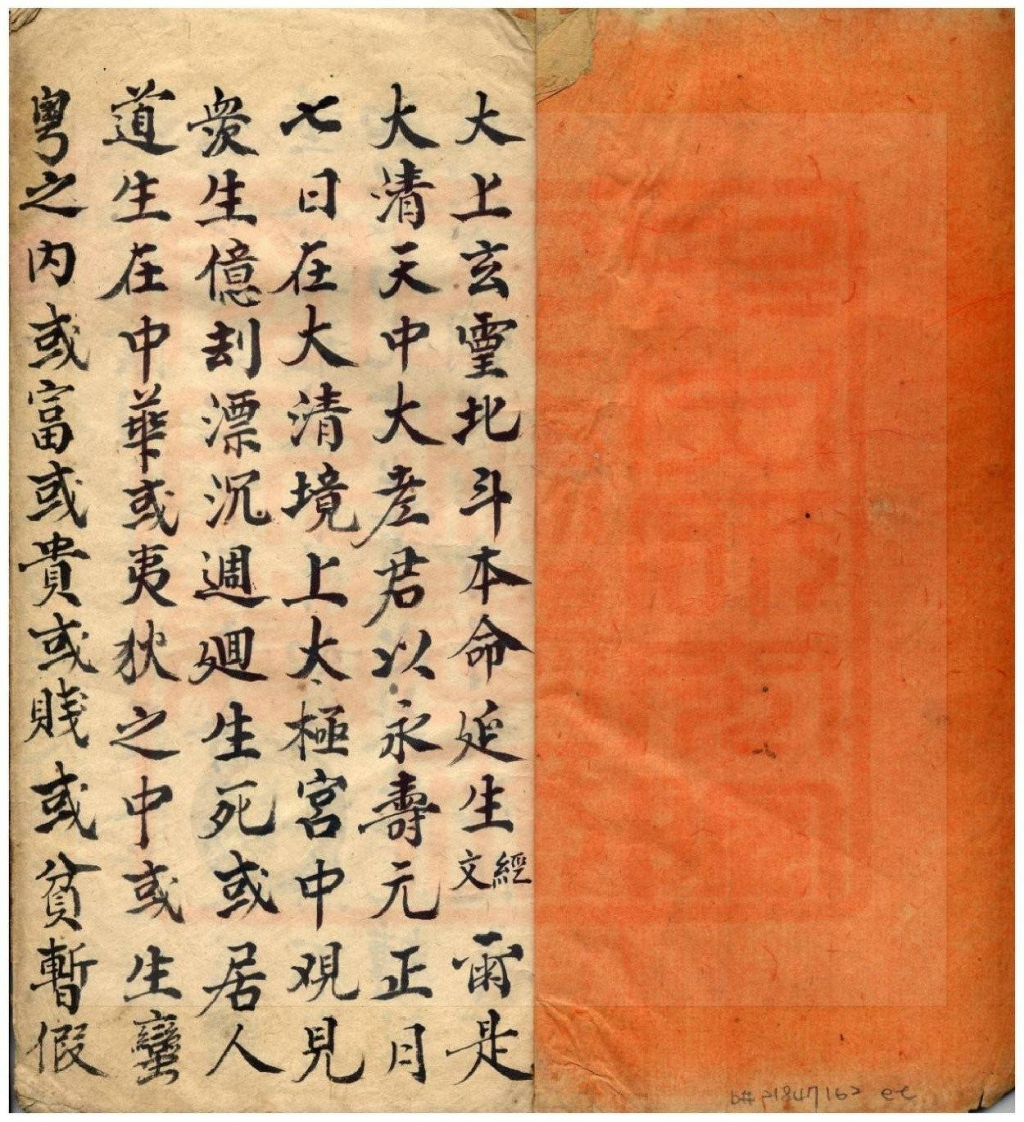 大上玄霊北斗本命延生經文 爾是
大清天中大老君以永壽元正月
七日在大清境上大極宮中观見
衆生億刦漂沉週廻生死或居人
道生在中華或夷狄之中或生蠻
粤之内或富或貴或賎或貧暫假
b# 21847162